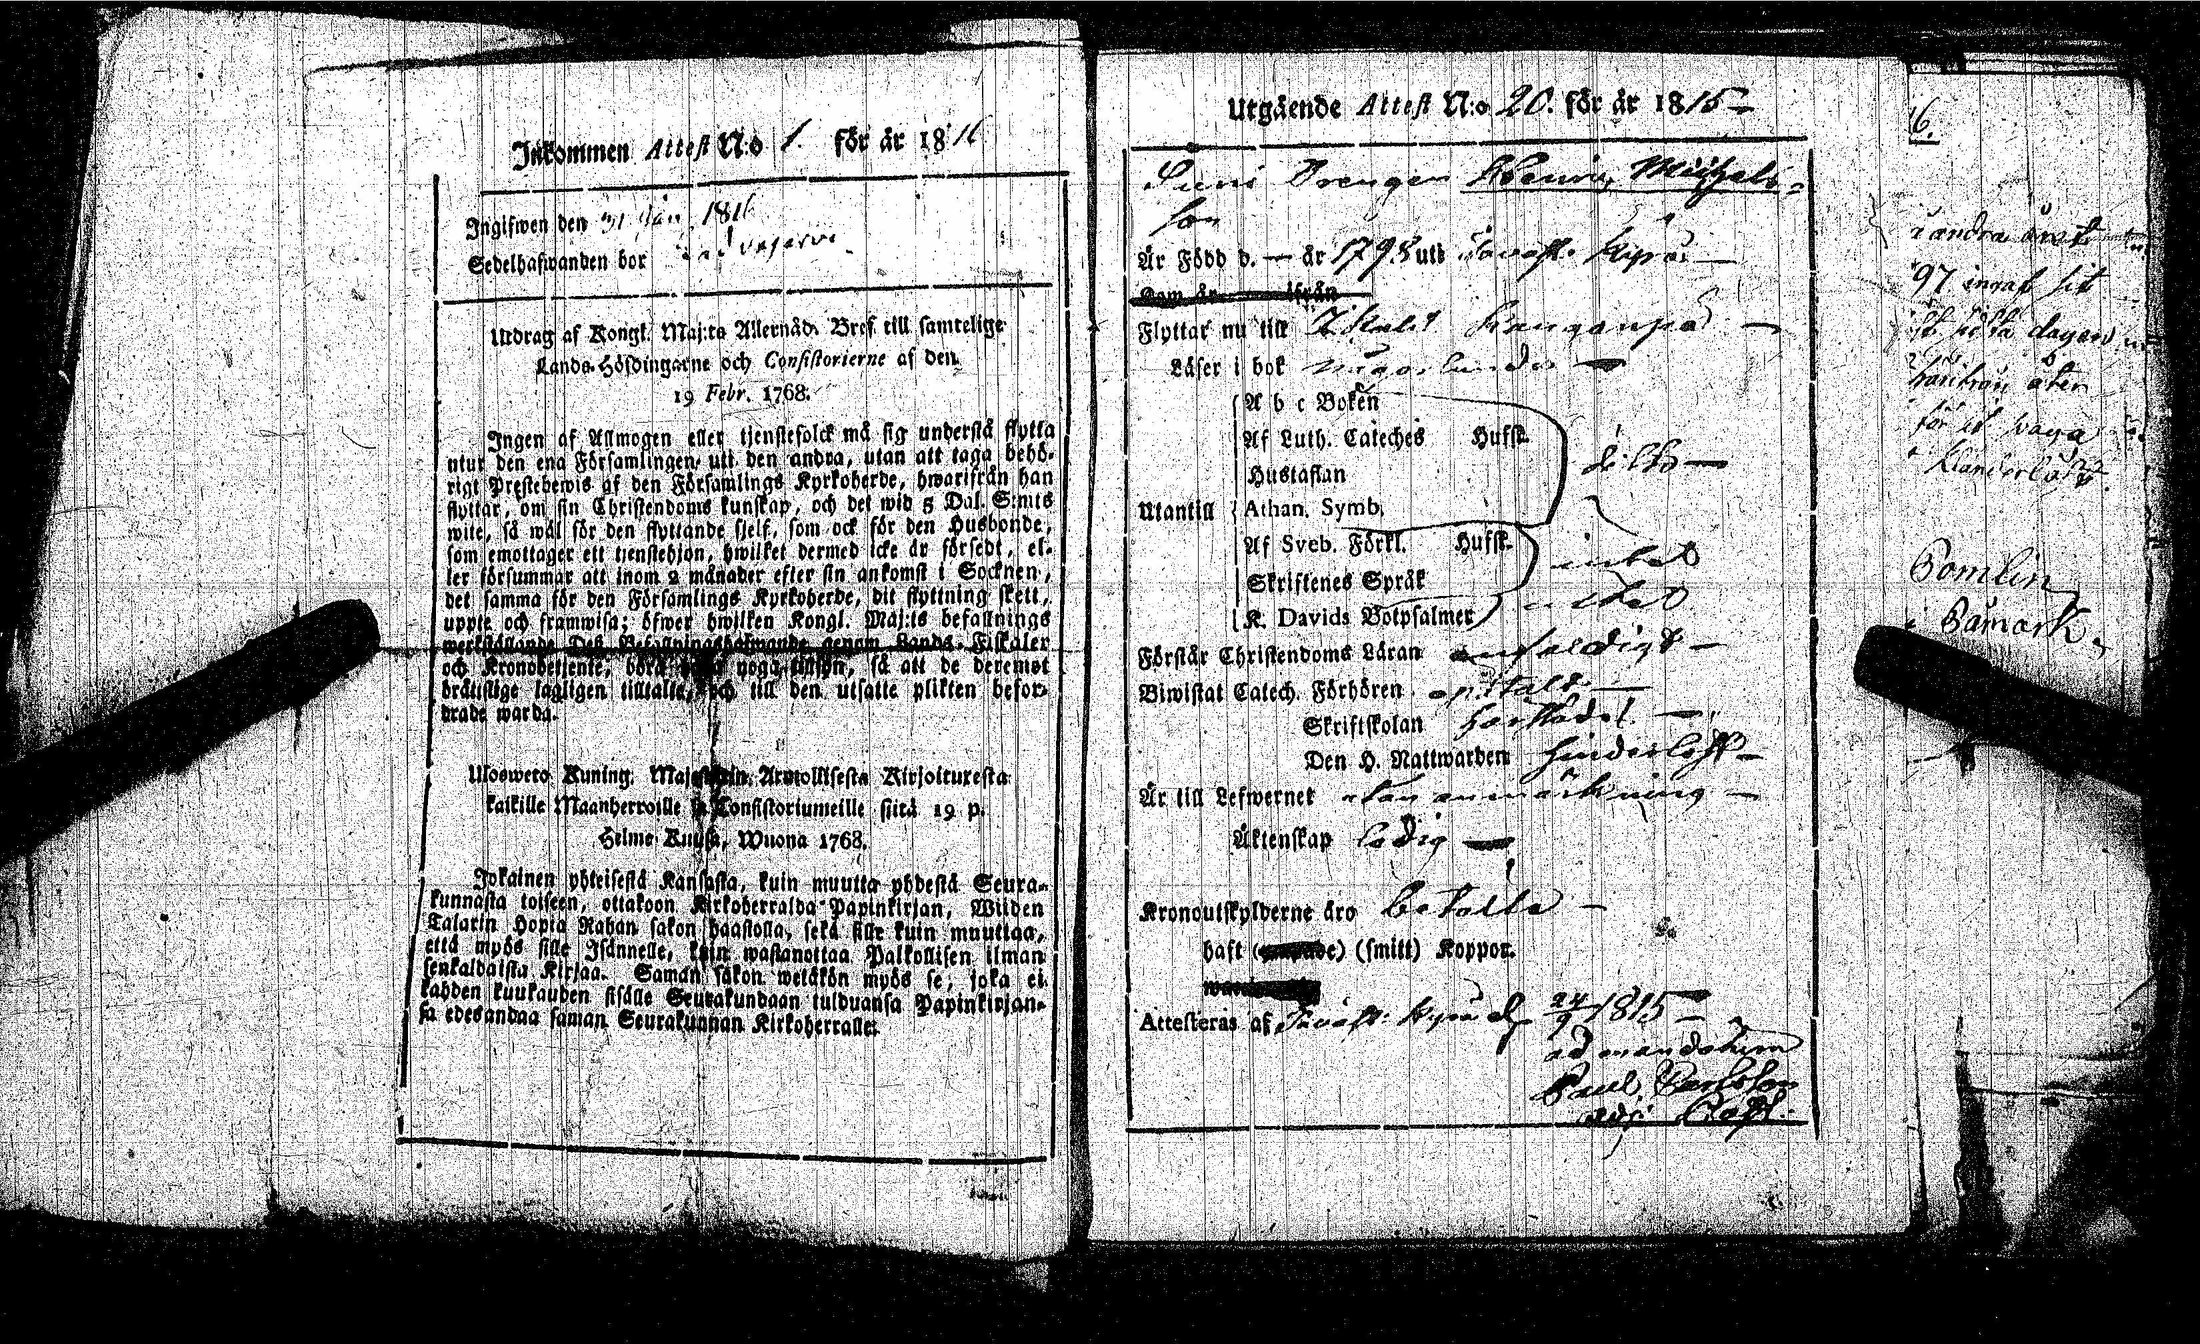 Inkommen Attest N:o 1. för år 1816
Ingifwen den 31 Jan. 1816
Sedelhafwanden bor
Utdrag af Kongl. Maj:ts Allernåd. Bref till samtelige
Lands-Höfdingarne och Consistorierne af den
19 Febr. 1768.
Ingen af Allmogen eller tjenstefolck må sig understå flytta
utur den ena Församlingen utt den andra, utan att taga behö-
rigt Prestebewis af den Församlings Kyrkoherde, hwarifrån han
flyttar, om sin Christendoms kunskap, och det wid 5 Dal. S:mts
wite, så wäl för den flyttande sjelf, som ock för den Husbonde,
som emottager ett tjenstehjon, hwilket dermed icke är försedt, el-
ler försummar att inom 2 månader efter sin ankomst i Socknen,
det samma för den Församlings Kyrkoherde, dit flyttning skett,
uppte och framwisa; öfwer hwilken Kongl. Maj:ts befallnings
werkställande Dess Befallningshafwande genom Lands-Fiskaler
och Kronobetjente, böra noga tillsyn, så att de deremot
bråttslige lagligen tilltalte, och till den utsatte plikten befor-
drade warda.
Ulosweto Kuning. Majestetin Armollisesta Kirjoituxesta
kaikille Maanherroille ja Consistoriumeille siitä 19 p.
Helme Kuusa, Wuona 1768.
Jokainen yhteisestä Kansasta, kuin muutta yhdestä Seura-
kunnasta toiseen, ottakoon Kirkoherralda Papinkirjan, Wiiden
Talarin Hopia Rahan sakon haastolla, sekä sille kuin muuttaa,
että myös sille Isännelle, kuin wastanottaa Palkollisen ilman
senkaldaista Kirjaa. Saman sakon wetäkön myös se, joka ei
kahden kuukauden sisälle Seurakundaan tulduansa Papinkirjan-
sa edesandaa saman Seurakunnan Kirkoherralle.
Utgående Attest N:o 20. för år 1815
Drengen Henric Michels-
son
Är Född d. — år 1798 uti Tavast Kyro —
Som är ifrån
Flyttar nu till Ikalis Kanganpä —
Läser i bok någorlunda —
A b c Boken
Af Luth. Cateches Hufst.
Hustaflan
dito —
Utantill Athan. Symb.
Af Sveb. Förkl. Hufst.
intet
Skriftenes Språk
K. Davids Botpsalmer intet
Förstår Christendoms Läran enfaldigt —
Biwistat Catech. Förhören
Skriftskolan
Den H. Nattwarden hinderlöst —
Är till Lefwernet utan anmärkning —
Äktenskap ledig —
Kronoutskylderne äro betalte —
haft (smitt) Koppor.
Attesteras af Tavast Kyro d. 24/9 1815 —
ad mandatum
Paul
adj.
6.
andra
97
dagen
åter
för
Pomlin
i Påmark.